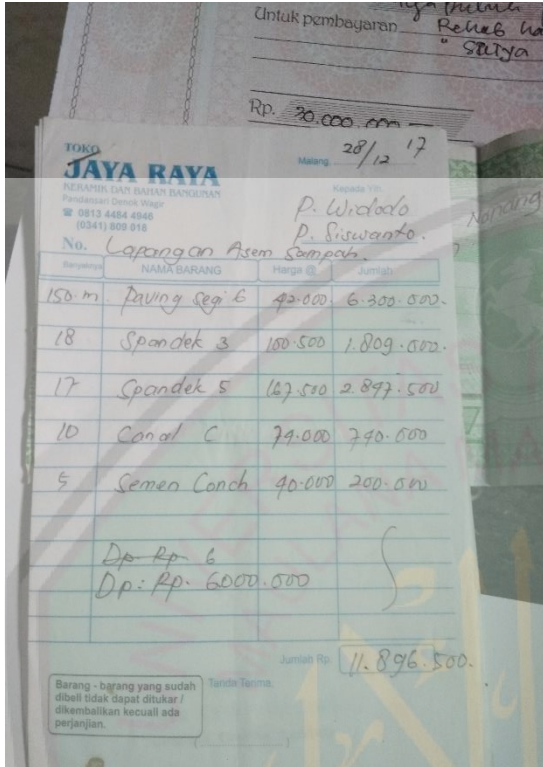 Untuk pembayaran Rehab
" Satya
Rp. 30.000.000
TOKO
JAYA RAYA
KERAMIK DAN BAHAN BANGUNAN
Pandansari Genok Wagir
☎ 0813 4464 4946
(0341) 809 018
Malang, 28/12 '17
Kepada Yth.
P. Widodo
P. Siswanto.
No. Lapangan Asem Sampah.
Banyaknya NAMA BARANG Harga @ Jumlah
150 m. Paving Segi 6 42.000 6.300.000.
18 Spandek 3 100.500 1.809.000.
17 Spandek 5 167.500 2.897.500
10 Canal C 79.000 790.000
5 Semen Conch 40.000 200.000
Dp Rp 6
Dp: Rp. 6000.000
Jumlah Rp. 11.896.500.
Tanda Terima,
Barang - barang yang sudah
dibeli tidak dapat ditukar /
dikembalikan kecuali ada
perjanjian.